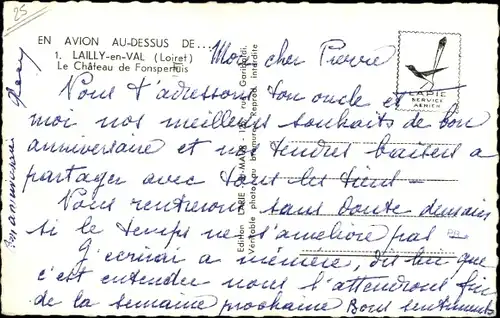 25
EN AVION AU-DESSUS DE...
1. LAILLY-en-VAL (Loiret)
Le Château de Fonspertuis
LAPIE
SERVICE
AÉRIEN
Mon cher Pierre
Nous t'adressons ton oncle et
moi nos meilleurs souhaits de bon
anniversaire et nos tendres baisers à
partager avec tous les tiens -
Nous rentrerons sans doute demain
si le temps ne s'améliore pas -
J'écrirai à mémère, dis lui que
c'est entendu nous l'attendrons fin
de la semaine prochaine Bons sentiments
Bon anniversaire
Edition LAPIE, St-MAUR - rue Garibaldi.
Véritable photo au bromure. Reprod. interdite